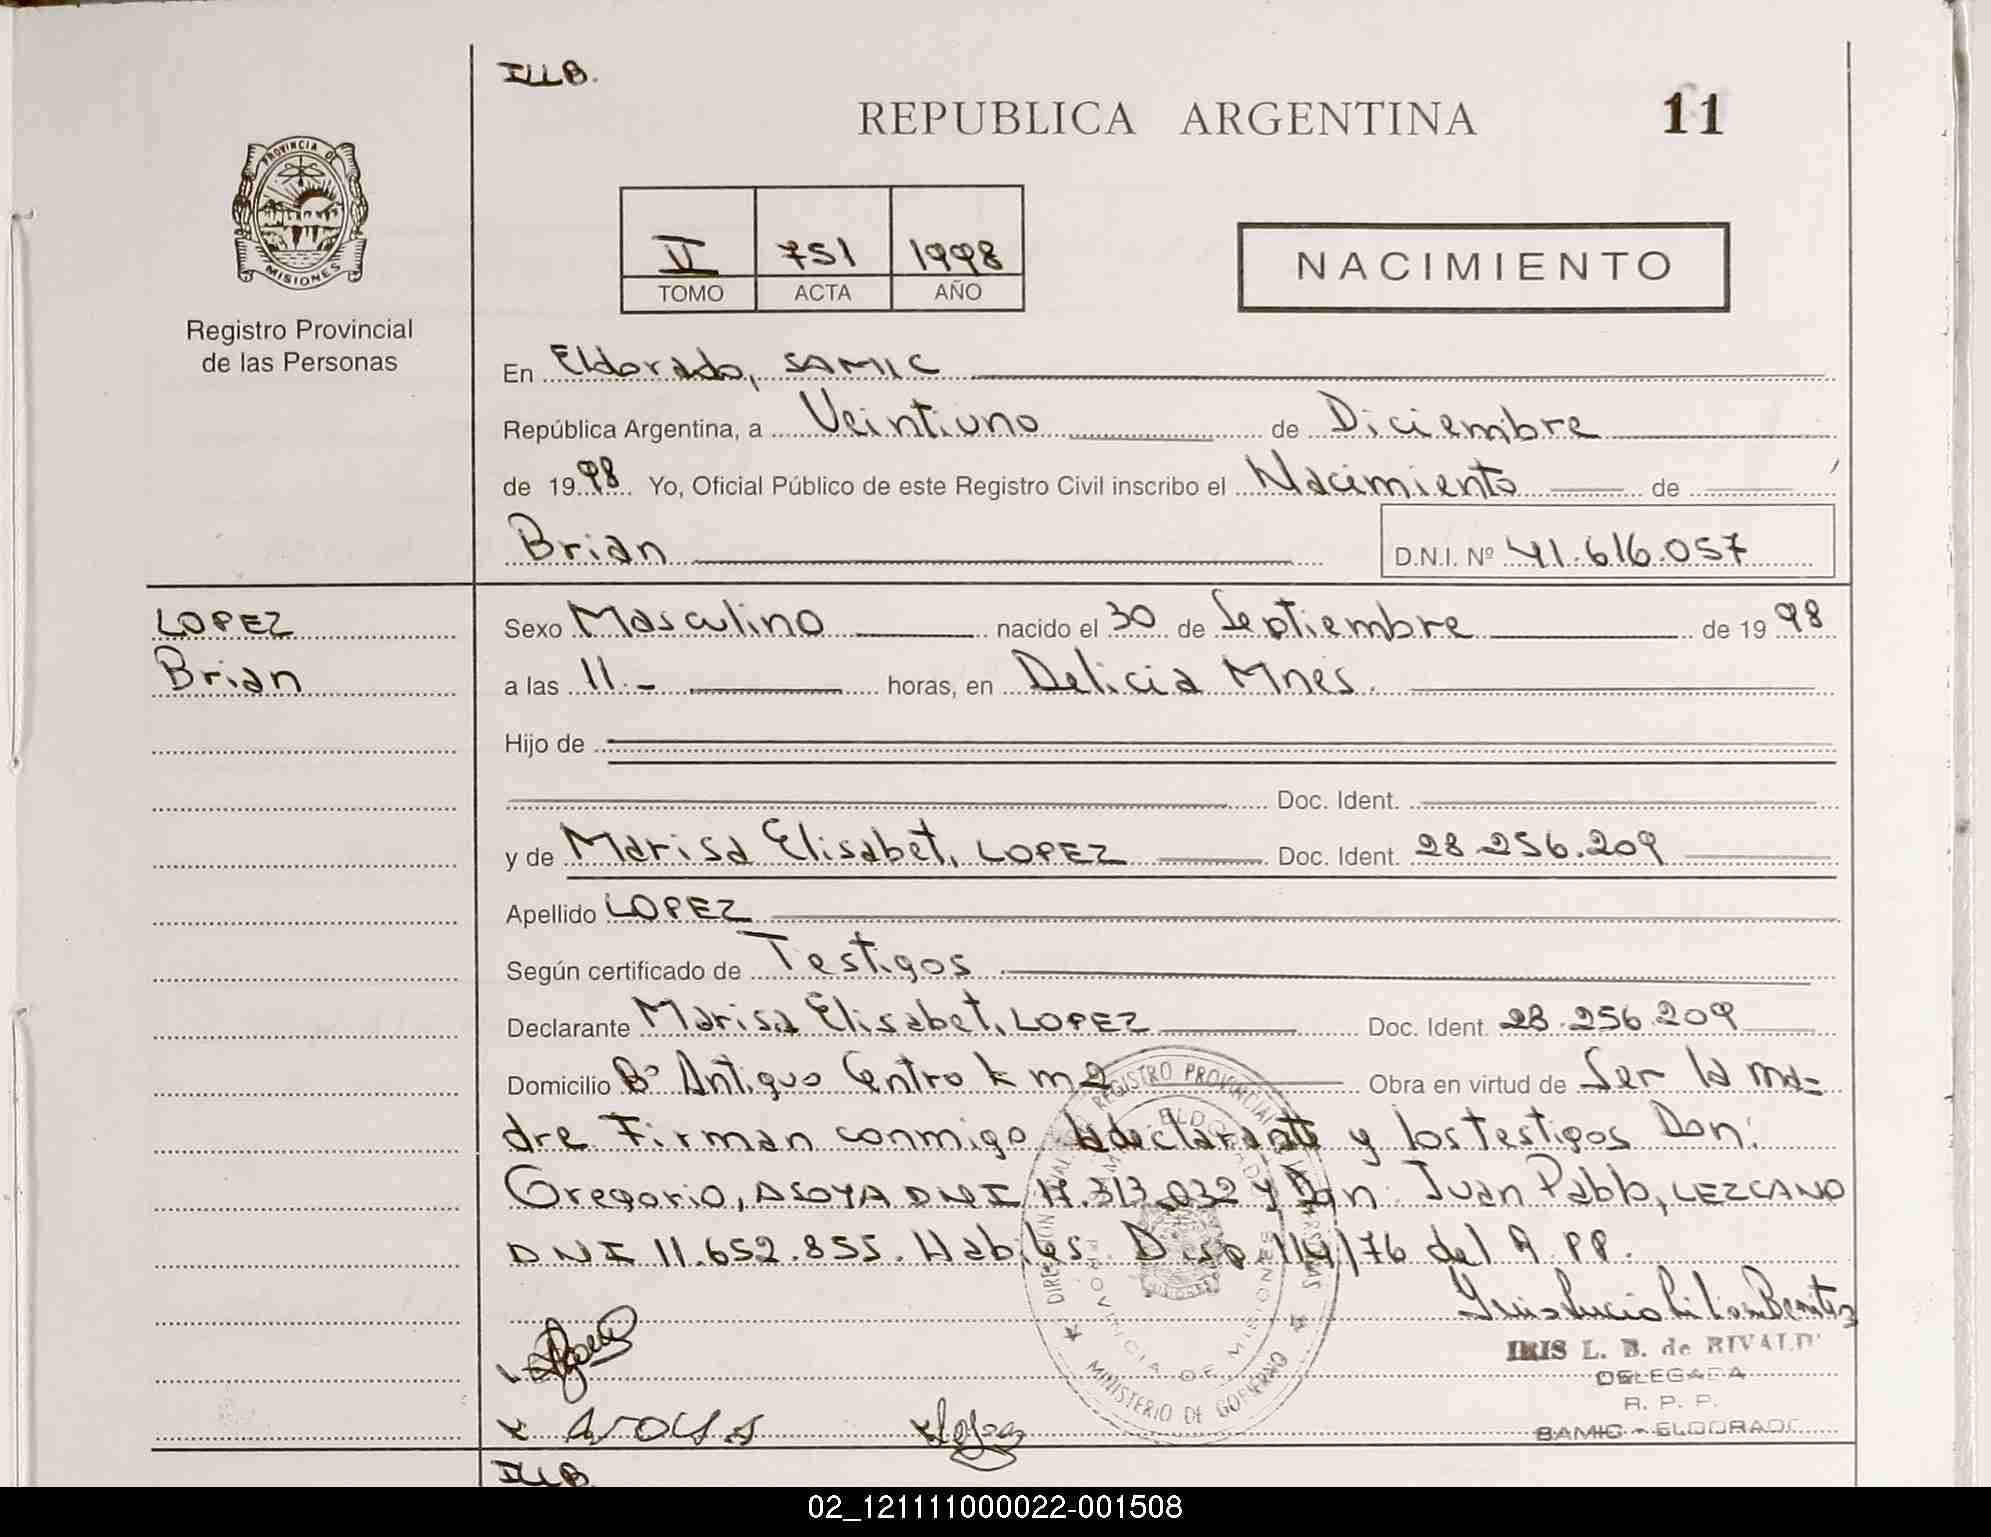 ILLB.
REPUBLICA ARGENTINA 11
PROVINCIA DE
MISIONES
II 751 1998
TOMO ACTA AÑO
NACIMIENTO
Registro Provincial
de las Personas
En Eldorado, SAMIC
República Argentina, a Veintiuno de Diciembre
de 1998 Yo, Oficial Público de este Registro Civil inscribo el Nacimiento de
Brian D.N.I. Nº 41.616.057
LOPEZ
Brian
Sexo Masculino nacido el 30 de Septiembre de 1998
a las 11.- horas, en Delicia Mnes.
Hijo de
Doc. Ident.
y de Marisa Elisabet, LOPEZ Doc. Ident. 28.256.209
Apellido LOPEZ
Según certificado de Testigos
Declarante Marisa Elisabet, LOPEZ Doc. Ident. 28.256.209
Domicilio Bº Antiguo Centro km 2 Obra en virtud de Ser la ma=
dre. Firman conmigo la declarante y los testigos Don:
Gregorio, ASOYA DNI 17.313.032 y Don: Juan Pablo, LEZCANO
DNI 11.652.855. Habiles. Disp. 114/76 del R.PP.
REGISTRO PROVINCIAL
ELDORADO
PROVINCIA DE MISIONES
MINISTERIO DE GOBIERNO
IRIS L. B. de RIVALD
DELEGADA
R. P. P.
SAMIC - ELDORADO
ILLB.
02_121111000022-001508